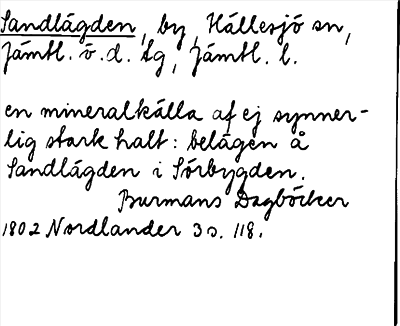 Sandlägden, by, Hällesjö sn,
Jämtl. ö. d. tg, Jämtl. l.
en mineralkälla af ej synner-
lig stark halt: belägen å
Sandlägden i Sörbygden.
Burmans Dagböcker
1802 Nordlander 3 s. 118.